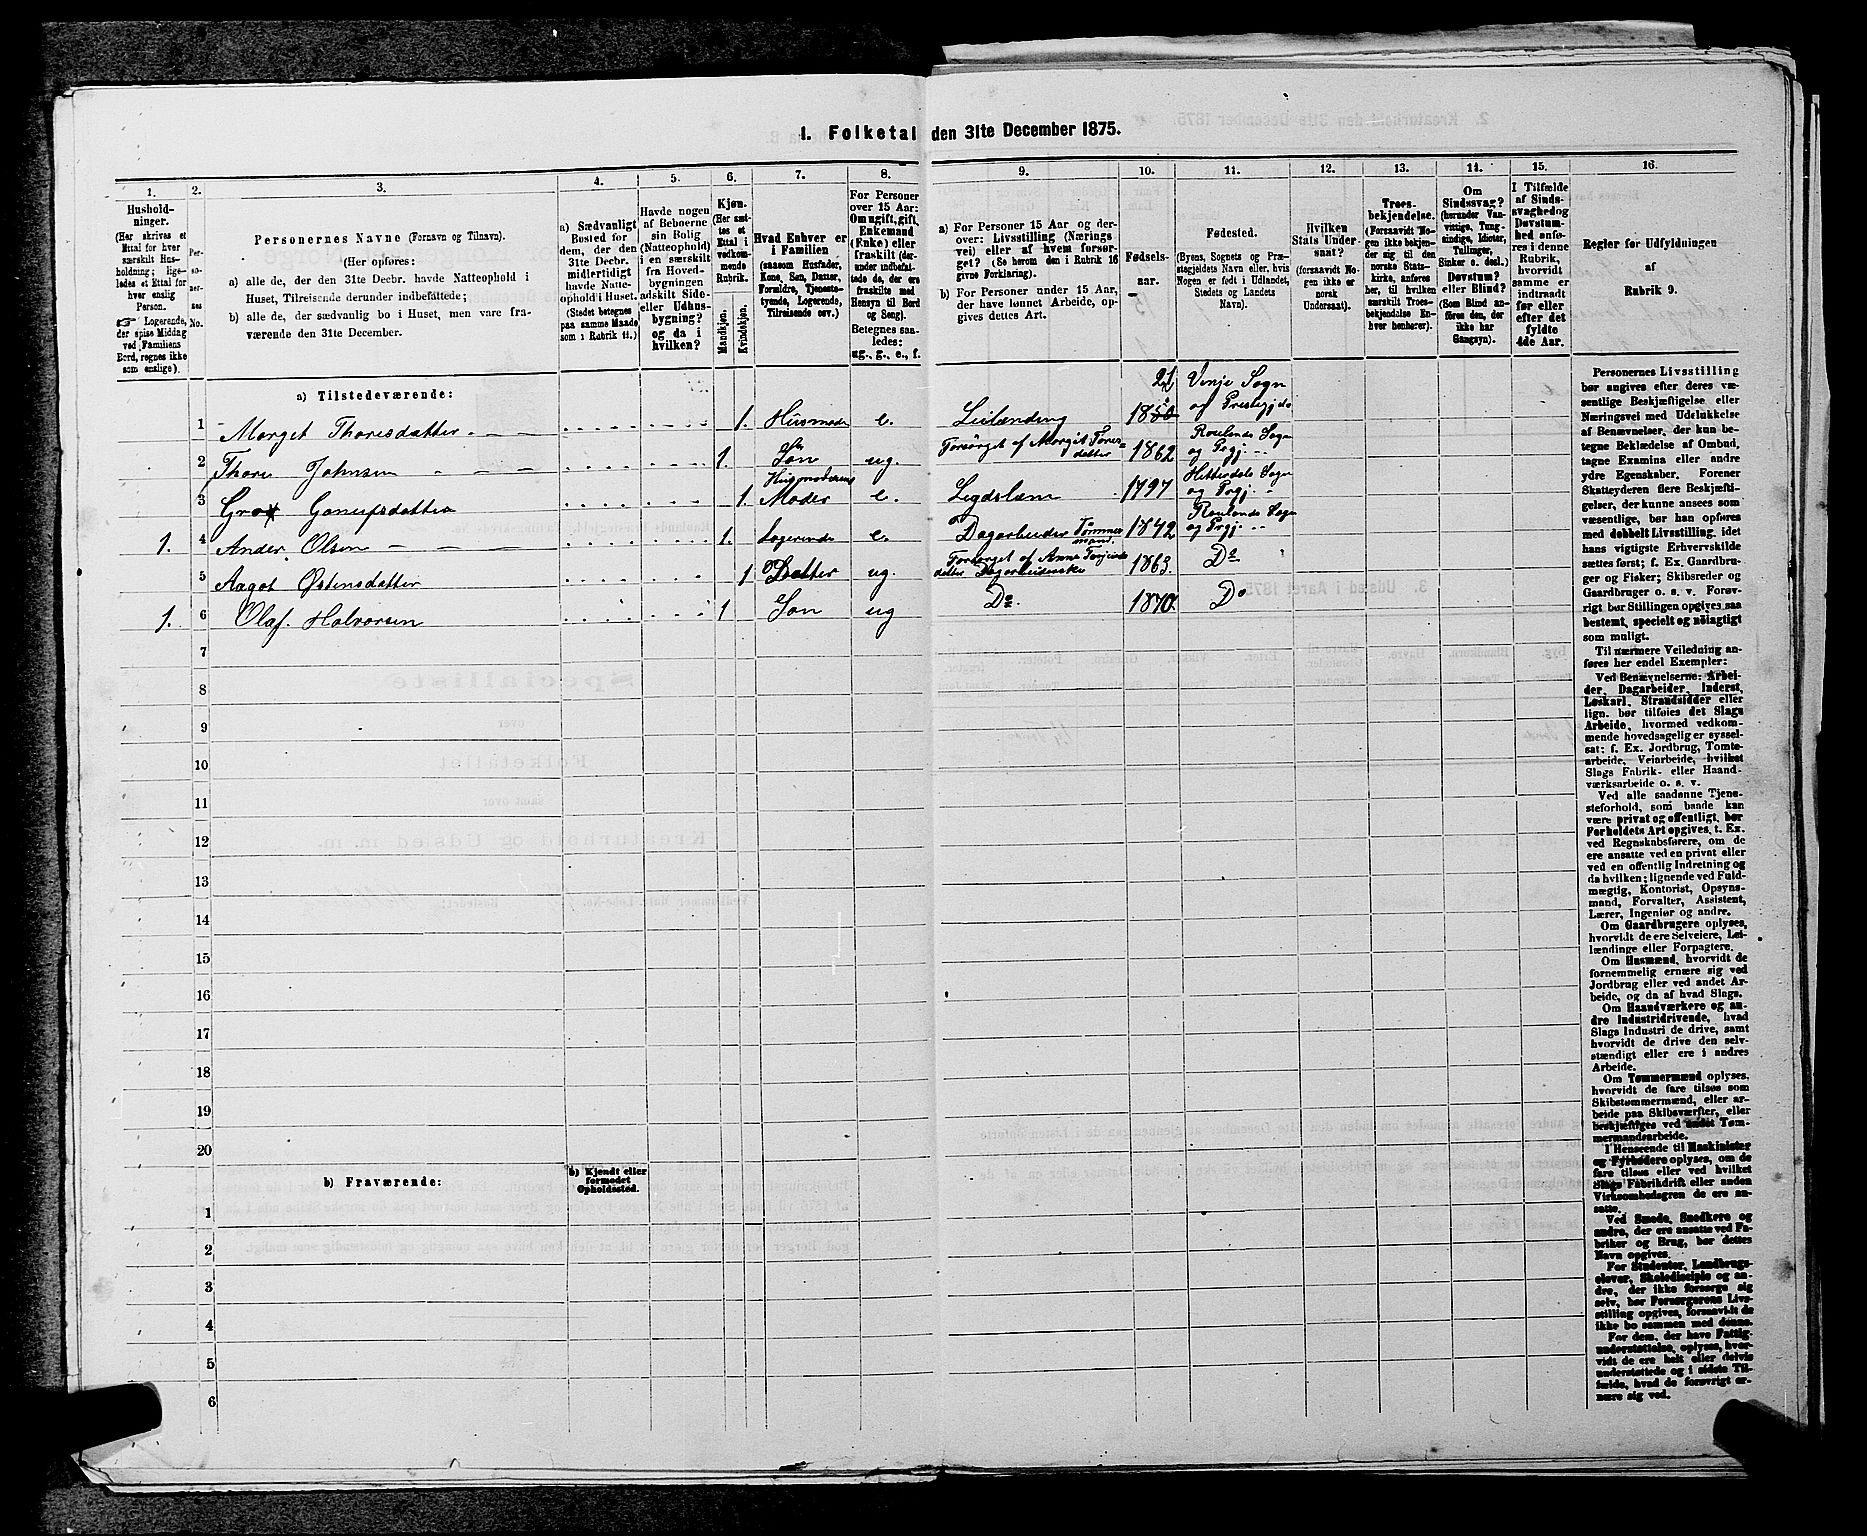 1. Folketal den 31te December 1875.
1. 2. 3. 4. 5. 6. 7. 8. 9. 10. 11. 12. 13. 14. 15. 16.
Hushold-
ninger.
(Her skrives et
Ettal for hver
særskilt Hus-
holdning; lige-
ledes et Ettal for
hver enslig
Person.
☞ Logerende,
der spise Middag
ved Familiens
Bord, regnes ikke
som enslige).
Per-
so-
ner-
nes
No.
Personernes Navne (Fornavn og Tilnavn).
(Her opføres:
a) alle de, der den 31te Decbr. havde Natteophold i
Huset, Tilreisende derunder indbefattede;
b) alle de, der sædvanlig bo i Huset, men vare fra-
værende den 31te December.
a) Sædvanligt
Bosted for
dem, der den
31te Decbr.
midlertidigt
havde Natte-
ophold i Huset.
(Stedet betegnes
paa samme Maade
som i Rubrik 11.)
Havde nogen
af Beboerne
sin Bolig
(Natteophold)
i en særskilt
fra Hoved-
bygningen
adskilt Side-
eller Udhus-
bygning?
og da i
hvilken?
Kjøn.
(Her sæt-
tes et
Ettal i
vedkom-
mende
Rubrik.
Mandkjøn.
Kvindekjøn.
Hvad Enhver er
i Familien
(saasom Husfader,
Kone, Søn, Datter,
Forældre, Tjeneste-
tyende, Logerende,
Tilreisende osv.)
For Personer
over 15 Aar:
Om ugift, gift,
Enkemand
(Enke) eller
fraskilt (der-
under indbefat-
tede de, der ere
fraskilte med
Hensyn til Bord
og Seng).
Betegnes saa-
ledes:
ug., g., e., f.
a) For Personer 15 Aar og der-
over: Livsstilling (Nærings
vei) eller af hvem forsør-
get? (Se herom den i Rubrik 16
givne Forklaring).
b) For Personer under 15 Aar,
der have lønnet Arbeide, op-
gives dettes Art.
Fødsels-
aar.
Fødested.
(Byens, Sognets og Præ-
stegjeldets Navn eller, hvis
Nogen er født i Udlandet,
Stedets og Landets
Navn).
Hvilken
Stats Under-
saat?
(forsaavidt No-
gen ikke er
norsk
Undersaat).
Troes-
bekjendelse.
(Forsaavidt No-
gen ikke bekjen-
der sig til den
norske Stats-
kirke, anføres
her, til hvilken
særskilt Troes-
bekjendelse En-
hver henhører).
Om
Sindssvag?
(herunder Van-
vittige, Tung-
sindige, Idioter,
Tullinger,
Sinker o. desl.)
Døvstum?
eller Blind?
(Som Blind an-
føres den, der
ikke har
Gangsyn).
I Tilfælde
af Sinds-
svaghed og
Døvstum-
hed anfø-
res i denne
Rubrik,
hvorvidt
samme er
indtraadt
før eller
efter det
fyldte
4de Aar.
Regler for Udfyldningen
af
Rubrik 9.
a) Tilstedeværende:
1 Morget Thoresdatter 1. Husmoder e. Leilending 1850 21 Vinje Sogn og Prestegjeld
2 Thore Johnsen 1. Søn ug. Forsørget af Margit Tores-datter 1862 Roulands Sogn og Prgj.
3 Gro Gonufsdatter 1. Husmoderens Moder e. Legdslem 1797 Hitterdals Sogn og Prgj.
1. 4 Ander Olsen 1. Logerende e. Dagarbeider Tømmermand. 1842 Roulands Sogn og Prgj.
5 Aagot Østensdatter 1 Datter ug. Forsørget af Anne Terjeisdatter Dagarbeiderske 1863. Do
1. 6 Olaf. Halvorsen 1 Søn ug Do. 1870. Do
7
8
9
10
11
12
13
14
15
16
17
18
19
20
b) Fraværende:
b) Kjendt eller
formodet
Opholdssted.
1
2
3
4
5
6
Personernes Livsstilling
bør angives efter deres væ-
sentlige Beskjæftigelse eller
Næringsvei med Udelukkelse
af Benævnelser, der kun be-
tegne Beklædelse af Ombud,
tagne Examina eller andre
ydre Egenskaber. Forener
Skatteyderen flere Beskjæfti-
gelser, der kunne ansees som
væsentlige, bør han opføres
med dobbelt Livsstilling, idet
hans vigtigste Erhvervskilde
sættes først; f. Ex. Gaardbru-
ger og Fisker; Skibsreder og
Gaardbruger o. s. v. Forøv-
rigt bør Stillingen opgives saa
bestemt, specielt og nøiagtigt
som muligt.
Til nærmere Veiledning an-
føres her endel Exempler:
Ved Benævnelserne: Arbei-
der, Dagarbeider, Inderst,
Løskarl, Strandsidder eller
lign. bør tilføies det Slags
Arbeide, hvormed vedkom-
mende hovedsagelig er syssel-
sat; f. Ex. Jordbrug, Tomte-
arbeide, Veiarbeide, hvilket
Slags Fabrik- eller Haand-
værksarbeide o. s. v.
Ved alle saadanne Tjene-
steforhold, som baade kan
være privat og offentligt, bør
Forholdets Art opgives, t. Ex.
ved Regnskabsførere, om de
ere ansatte ved en privat eller
ved en offentlig Indretning og
da hvilken; lignende ved Fuld-
mægtig, Kontorist, Opsyns-
mand, Forvalter, Assistent,
Lærer, Ingeniør og andre.
Om Gaardbrugere oplyses,
hvorvidt de ere Selveiere, Lei-
lændinge eller Forpagtere.
Om Husmænd, hvorvidt de
fornemmelig ernære sig ved
Jordbrug eller ved andet Ar-
beide, og da af hvad Slags.
Om Haandværkere og an-
dre Industridrivende, hvad
Slags Industri de drive, samt
hvorvidt de drive den selv-
stændigt eller ere i andres
Arbeide.
Om Tømmermænd oplyses,
hvorvidt de fare tilsøs som
Skibstømmermænd, eller ar-
beide paa Skibsværfter, eller
beskjæftiges ved andet Tøm-
mermandsarbeide.
I Henseende til Maskinister
og Fyrbødere oplyses, om de
fare tilsøs eller ved hvilket
Slags Fabrikdrift eller anden
Virksomhedsgren de ere an-
satte.
Ved Smede, Snedkere og
andre, der ere ansatte ved Fa-
briker og Brug, bør dettes
Navn opgives.
For Studenter, Landbrugs-
elever, Skoledisciple og an-
dre, der ikke forsørge sig
selv, bør Forsørgerens Livs-
stilling opgives, forsaavidt de
ikke bo sammen med denne.
For dem, der have Fattig-
understøttelse, oplyses, hvor-
vidt de ere helt eller delvis
understøttede og i sidste Til-
fælde, hvad de forøvrigt er-
nære sig ved.